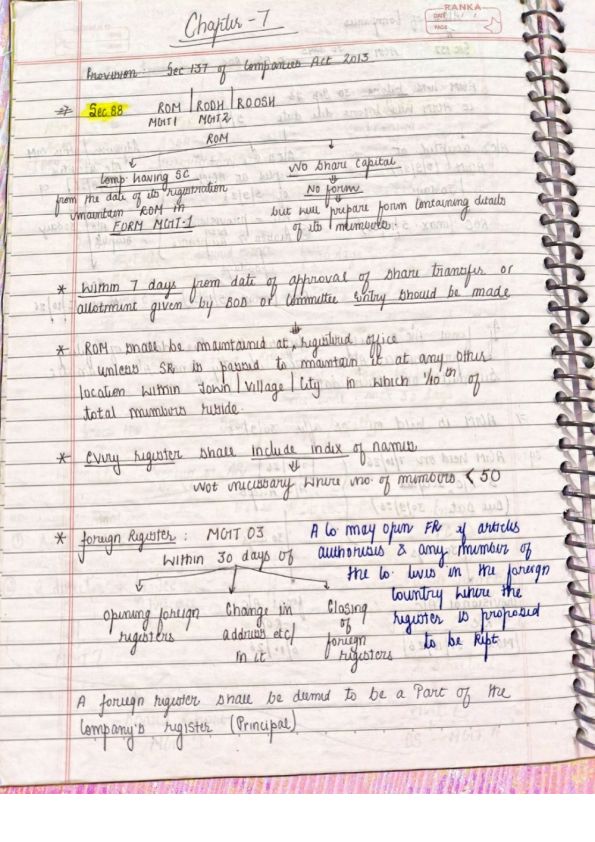 RANKA
DATE
PAGE
Chapter - 7
Provision: Sec 137 of Companies Act 2013
Sec 88 ROM | RODH | ROOSH
MGT1 MGT2
ROM
Comp having SC
from the date of its registration
maintain ROM in
FORM MGT-1
No share capital
No form
but will prepare form containing details
of its members
* Within 7 days from date of approval of share transfer or
allotment given by BOD or Committee entry should be made
* ROM shall be maintained at registered office
unless SR is passed to maintain it at any other
location within Town | Village | City in which 1/10th of
total members reside.
* Every register shall include index of names
Not necessary where no. of members < 50
* Foreign Register: MGT 03
Within 30 days of
opening foreign
registers
Change in
address etc/
in it
Closing
of
foreign
registers
A Co may open FR if articles
authorises & any member of
the Co. lives in the foreign
Country where the
register is proposed
to be kept
A foreign register shall be deemed to be a Part of the
Company's register (Principal)